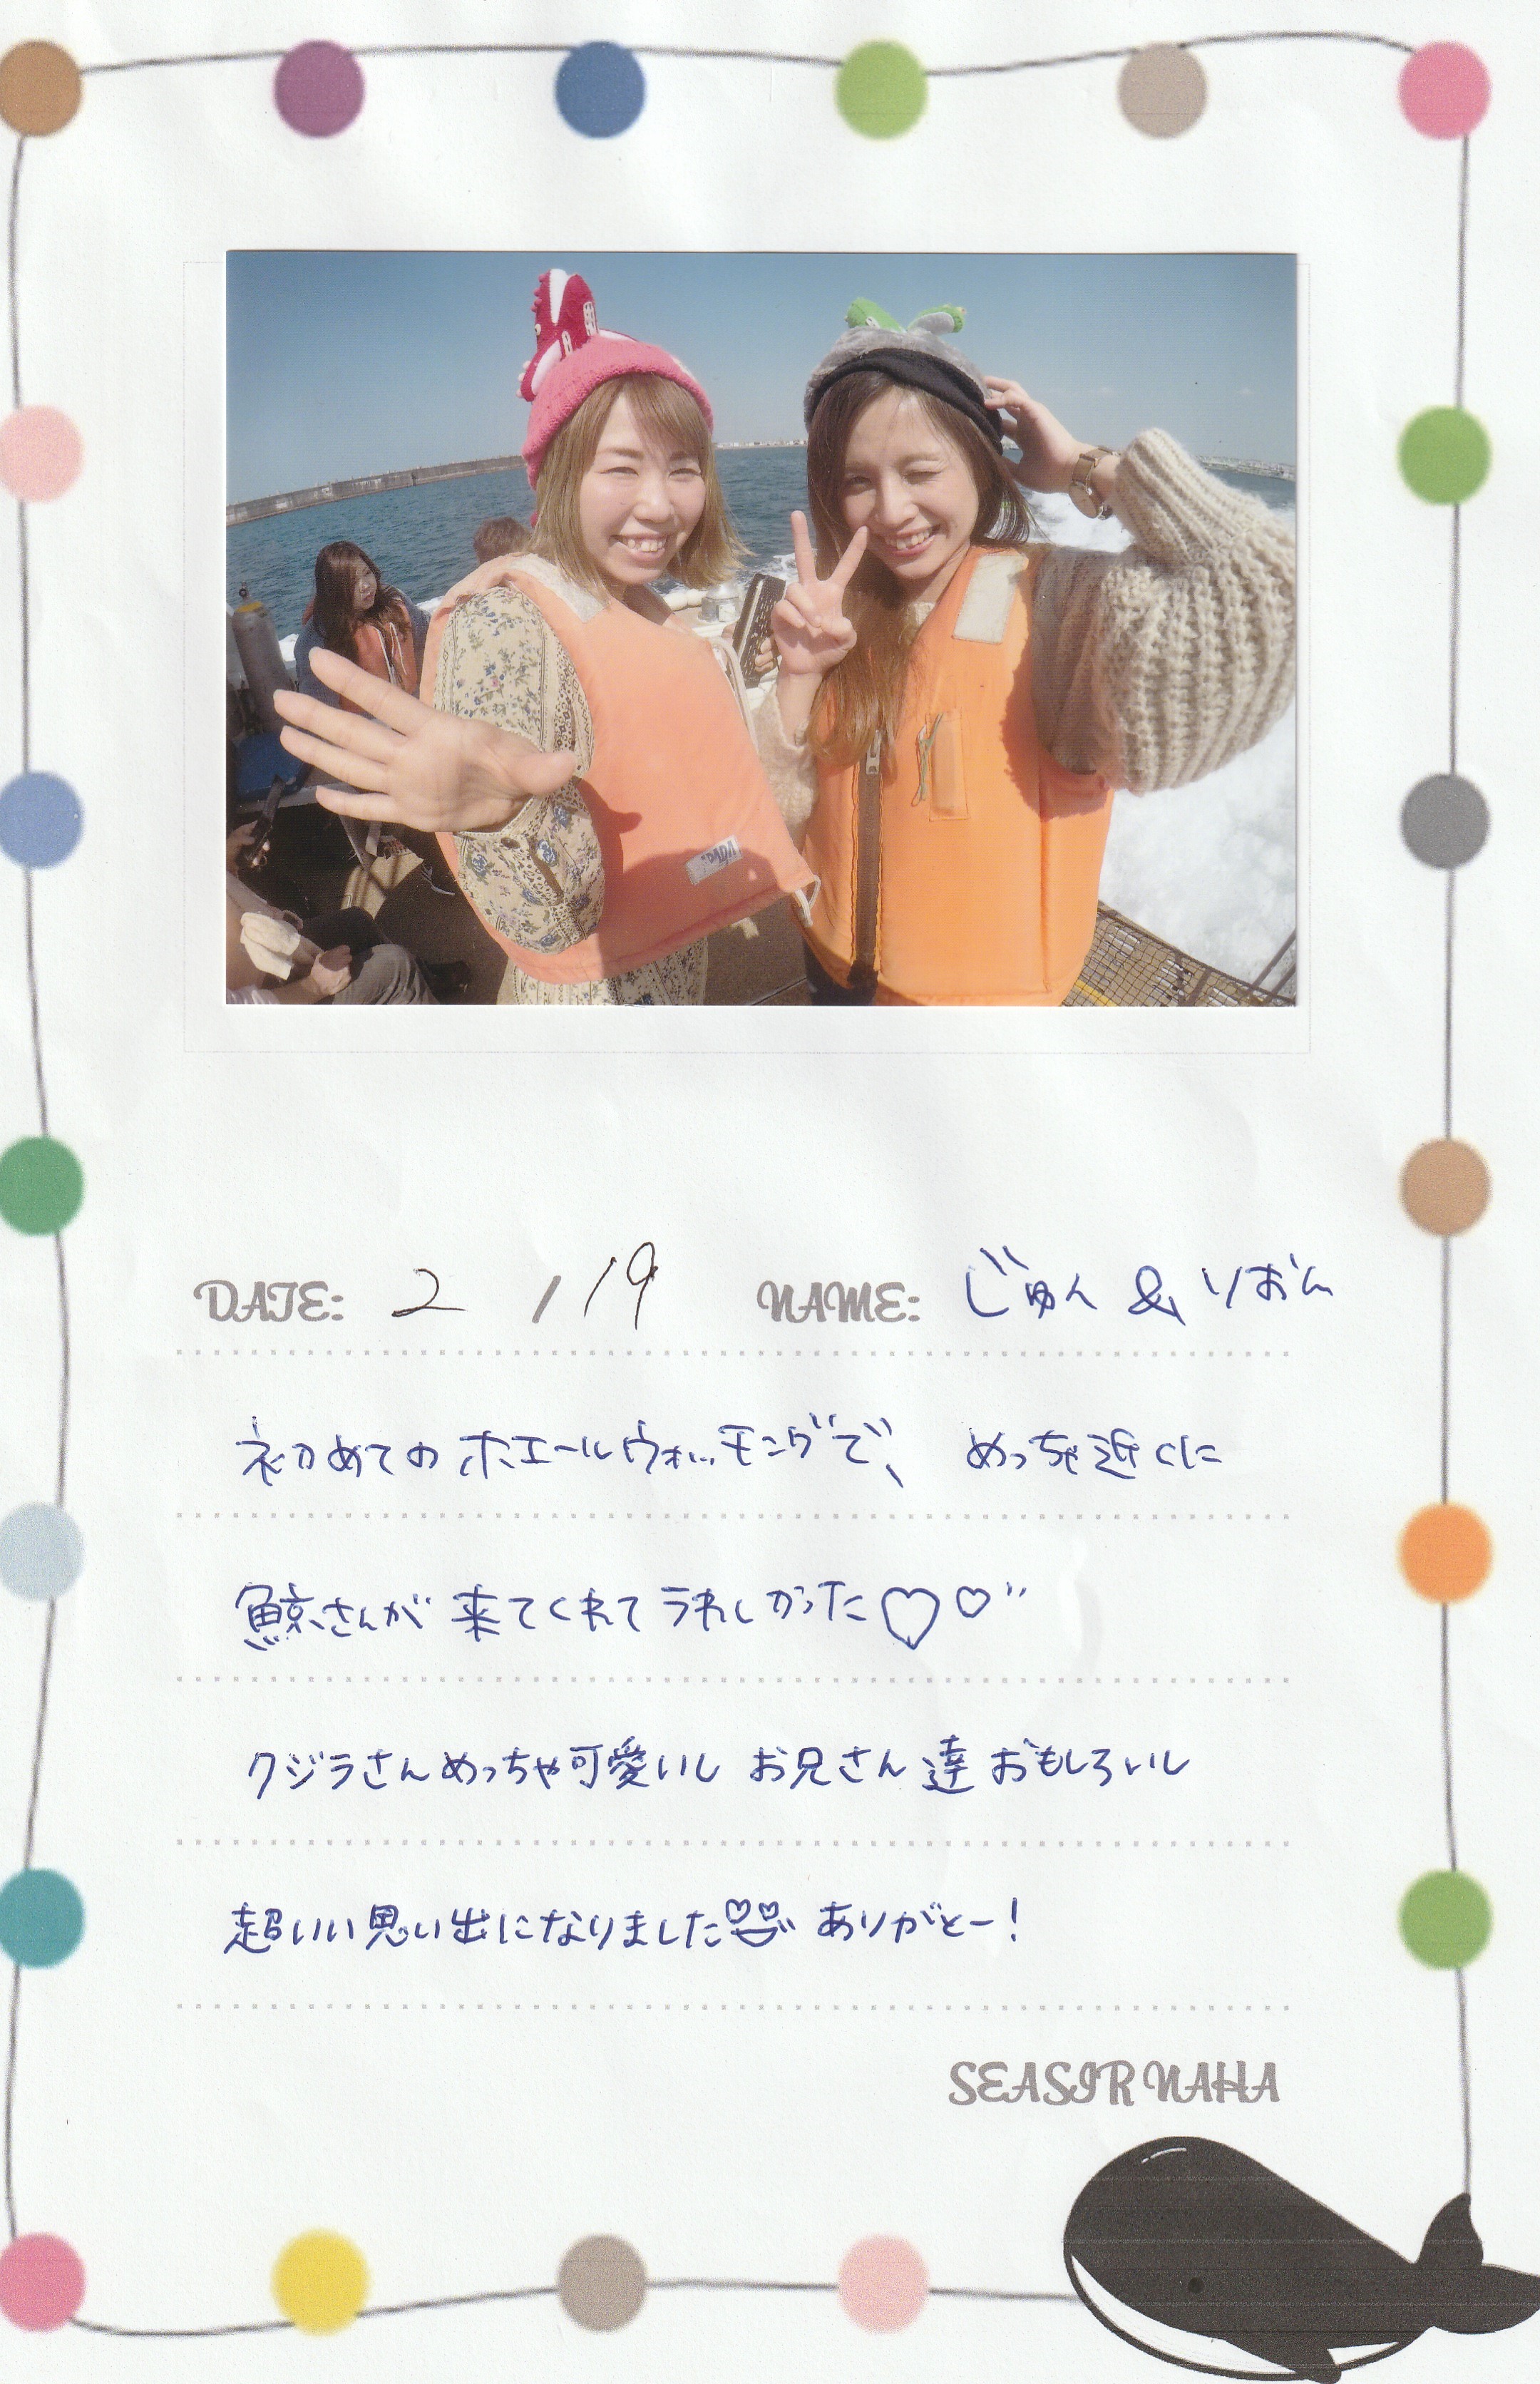 PADA
DATE: 2 / 19 NAME: じゅん & りおん
初めてのホエールウォッチングで、 めっちゃ近くに
鯨さんが 来てくれて うれしかった♡♡
クジラさんめっちゃ可愛いし お兄さん達 おもしろいし
超いい思い出になりました ありがとー!
SEASIR NAHA